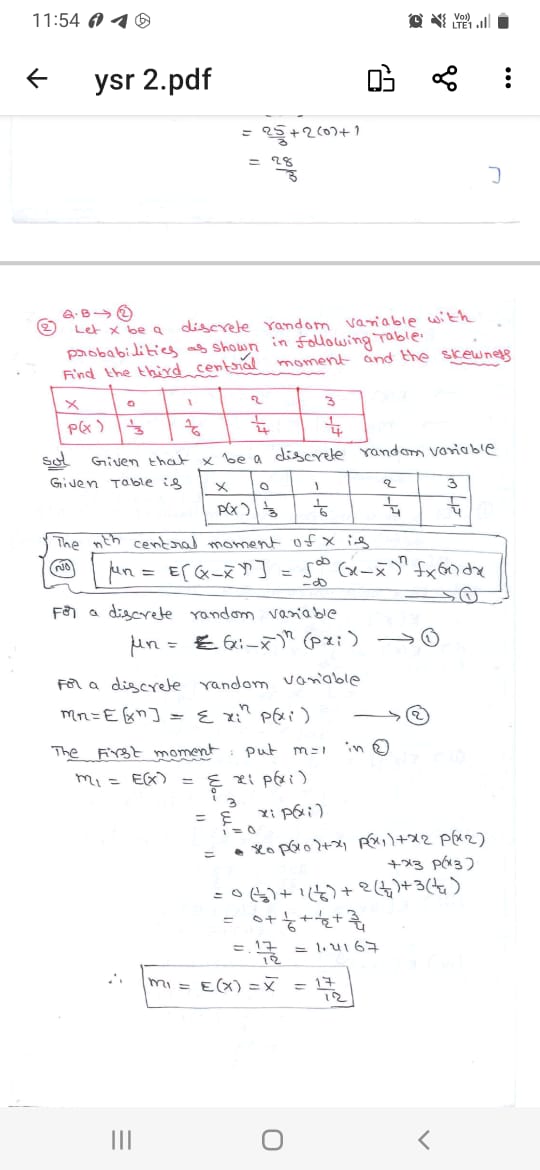 11:54
Vo))
LTE1
ysr 2.pdf
= 25/3 + 2(0) + 1
= 28/3
Q.B → ②
② Let x be a discrete random variable with
probabilities as shown in following Table.
Find the third central moment and the skewness
X 0 1 2 3
P(x) 1/3 1/6 1/4 1/4
Sol Given that x be a discrete random variable
Given Table is X 0 1 2 3
P(x) 1/3 1/6 1/4 1/4
The nth central moment of x is
μn = E[(x-x̄)ⁿ] = ∫_{-∞}^{∞} (x-x̄)ⁿ fx(x) dx
→ ①
For a discrete random variable
μn = Σ (xi-x̄)ⁿ (pxi) → ①
For a discrete random variable
mn = E[xⁿ] = Σ xiⁿ p(xi) → ②
The First moment : put n=1 in ②
m1 = E(x) = Σ_i xi p(xi)
= Σ_{i=0}^{3} xi p(xi)
= x0 p(x0) + x1 p(x1) + x2 p(x2)
+ x3 p(x3)
= 0(1/3) + 1(1/6) + 2(1/4) + 3(1/4)
= 0 + 1/6 + 1/2 + 3/4
= 17/12 = 1.4167
∴ m1 = E(x) = x̄ = 17/12